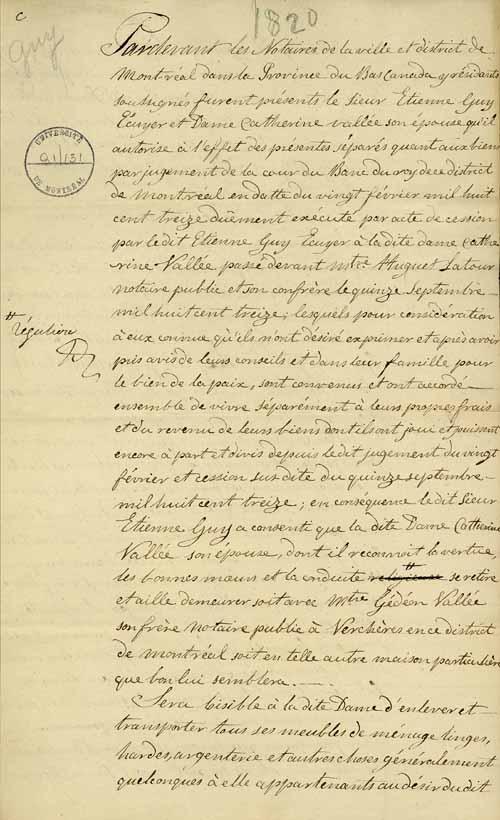 C
1820
Guy
UNIVERSITÉ
Q1/131
DE MONTRÉAL
Pardevant les Notaires de la ville et district de
Montréal dans la Province du Bas Canada y résidants
soussignés furent présents le Sieur Etienne Guy
Ecuyer et Dame Catherine Vallée son épouse qu'il
autorise à l'effet des présentes, séparés quant aux biens
par jugement de la cour du Banc du roy de ce district
de Montréal en datte du vingt février mil huit
cent treize duëment exécuté par acte de cession
par le dit Etienne Guy Ecuyer à la dite dame Cathe
rine Vallée passé devant Mtre Huguet Latour
notaire public et son confrère le quinze Septembre
mil huit cent treize; lesquels pour considération
à eux connue qu'ils n'ont désiré exprimer et après avoir
pris avis de leurs conseils et dans leur famille pour
le bien de la paix, sont convenus et ont accordé
ensemble de vivre séparément à leurs propres frais
et du revenu de leurs biens dont ils ont joui et jouissent
encore à part et divis depuis le dit jugement du vingt
février et cession sus dite du quinze septembre
mil huit cent treize; en conséquence le dit Sieur
Etienne Guy a consenti que la dite Dame Catherine
Vallée son épouse, dont il reconnoit la vertue,
les bonnes mœurs et la conduite religieuse # se retire
et aille demeurer soit avec Mtre Gédéon Vallée
son frère notaire public à Verchères en ce district
de Montréal soit en telle autre maison particulière
que bon lui semblera.
# régulière
Sera loisible à la dite Dame d'enlever et
transporter tous ses meubles de ménage linges,
hardes, argenterie et autres choses généralement
quelconques à elle appartenants au désir du dit